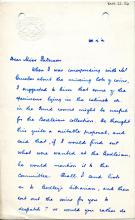 Dear Miss Paterson
When I was corresponding with Mr
about the missing lots of coins,
I suggested to him that some of the
specimens lying in the cabinet
in the Bond Room might be useful
for the Bodleian collection. He thought
this quite a suitable proposal, and
said that if I would find out
what was wanted at the Bodleian,
he would mention it to the
Committee. Shall I send lists
to Bodley's Librarian, and then
sort out the coins for you to
despatch? or would you rather do